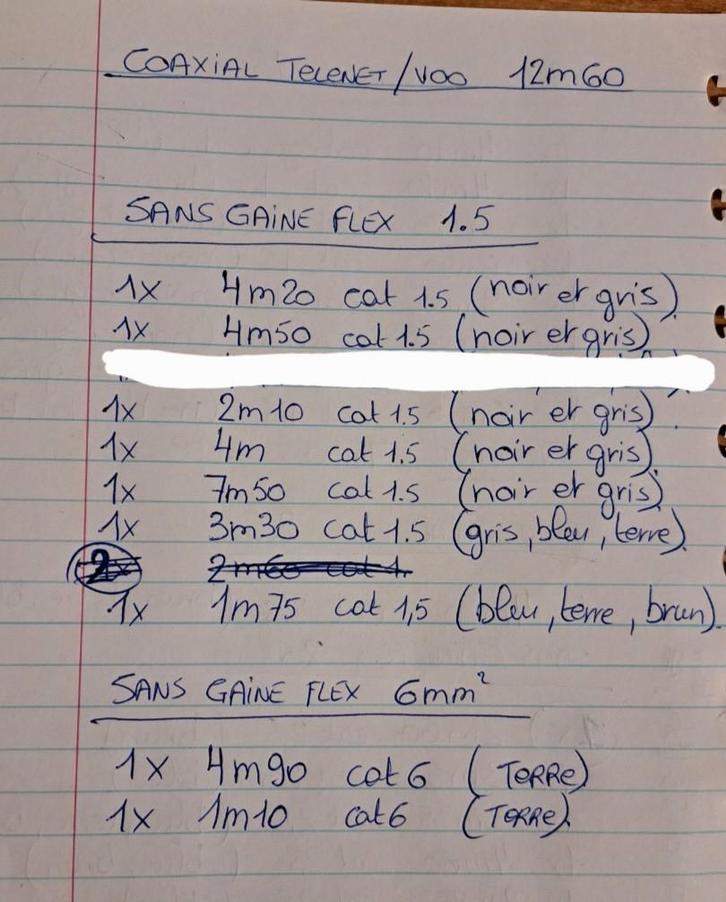 COAXIAL TELENET/VOO 12m60
SANS GAINE FLEX 1.5
1x 4m20 cat 1.5 (noir et gris)
1x 4m50 cat 1.5 (noir et gris)
1x 2m10 cat 1.5 (noir et gris)
1x 4m cat 1.5 (noir et gris)
1x 7m50 cat 1.5 (noir et gris)
1x 3m30 cat 1.5 (gris, bleu, terre)
2m60 cat 1.
1x 1m75 cat 1,5 (bleu, terre, brun).
SANS GAINE FLEX 6mm²
1x 4m90 cat 6 (TERRE)
1x 1m10 cat 6 (TERRE)